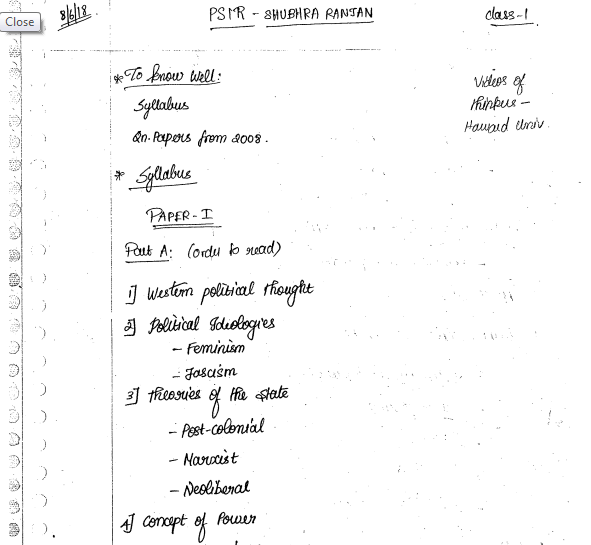 Close
8/6/18
PSIR - SHUBHRA RANJAN
class-1
* To know well:
Syllabus
Qn. Papers from 2008.
Videos of
thinkers -
Harvard Univ.
* Syllabus
PAPER-I
Part A: (order to read)
1] Western political thought
2] Political Ideologies
- Feminism
- Fascism
3] Theories of the state
- Post-colonial
- Marxist
- Neoliberal
4] Concept of Power